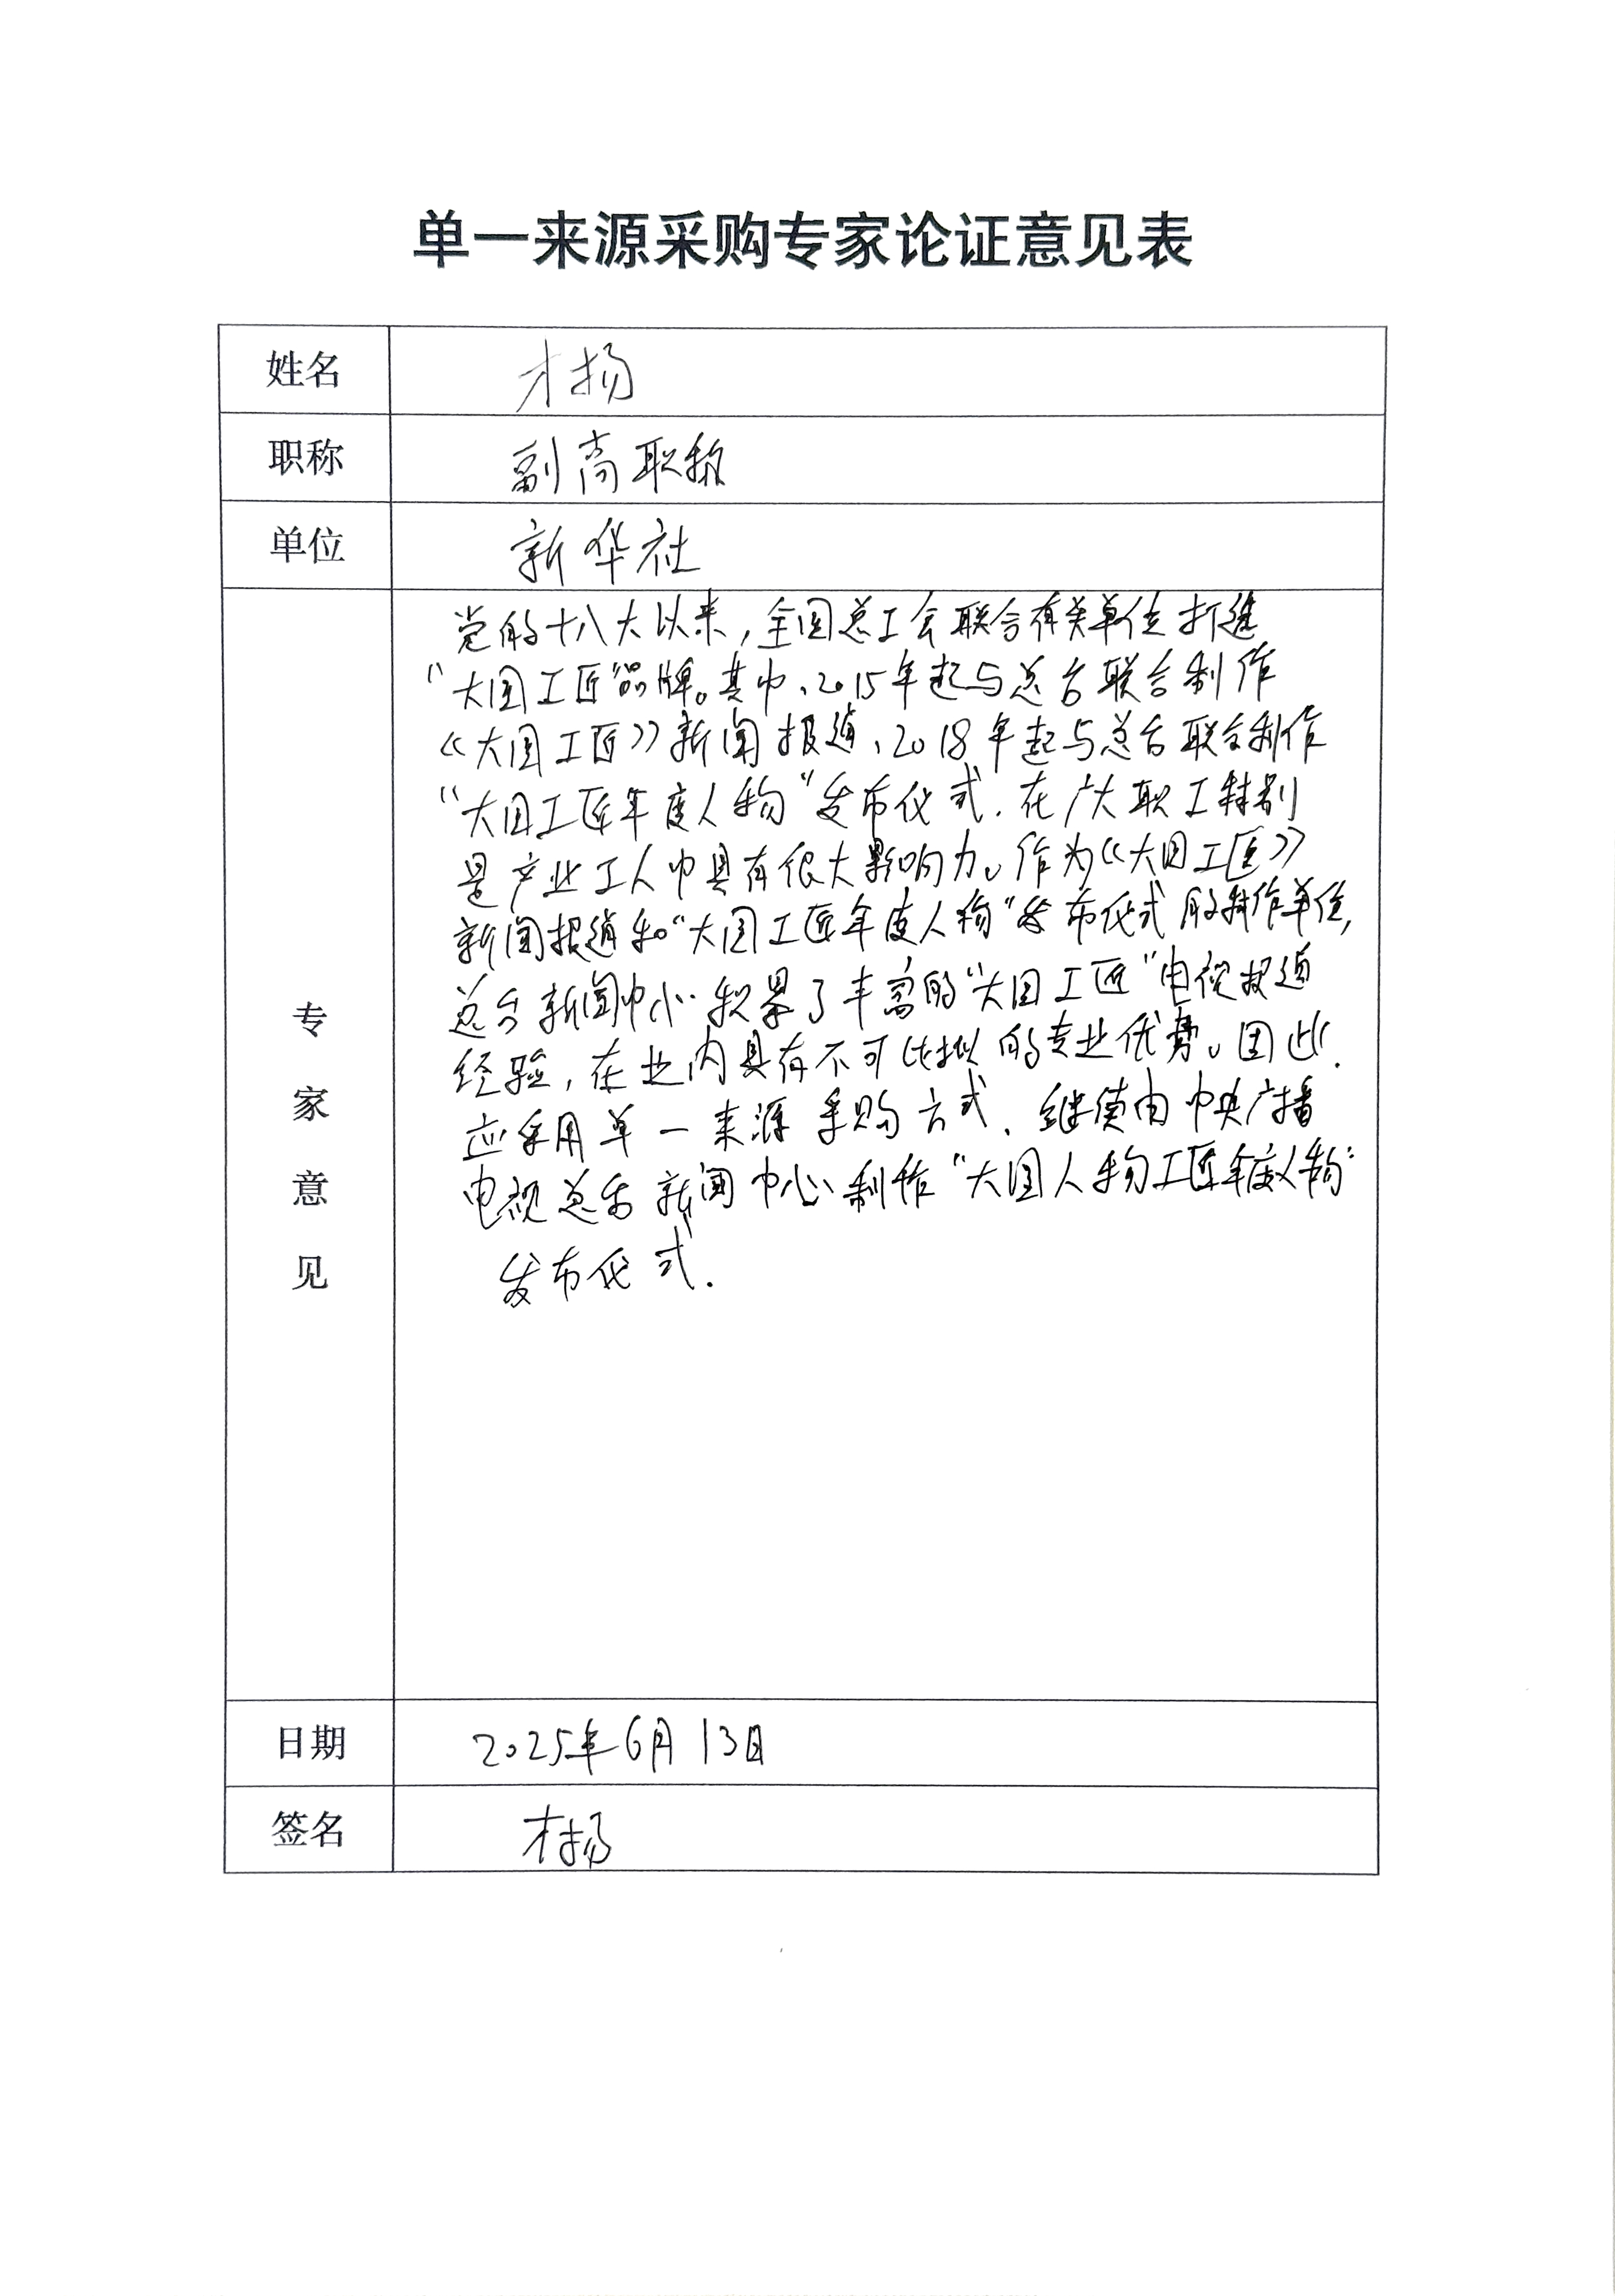 单一来源采购专家论证意见表
姓名 才扬
职称 副高职称
单位 新华社
专家意见
党的十八大以来,全国总工会联合有关单位打造
“大国工匠”品牌。其中、2015年起与总台联合制作
《大国工匠》新闻报道、2018年起与总台联合制作
“大国工匠年度人物”发布仪式.在广大职工特别
是产业工人中具有很大影响力。作为《大国工匠》
新闻报道和“大国工匠年度人物”发布仪式的制作单位,
总台新闻中心积累了丰富的“大国工匠”电视报道
经验,在业内具有不可比拟的专业优势。因此.
应采用单一来源采购方式.继续由中央广播
电视总台新闻中心制作“大国人物工匠年度人物”
发布仪式.
日期 2025年6月13日
签名 才扬